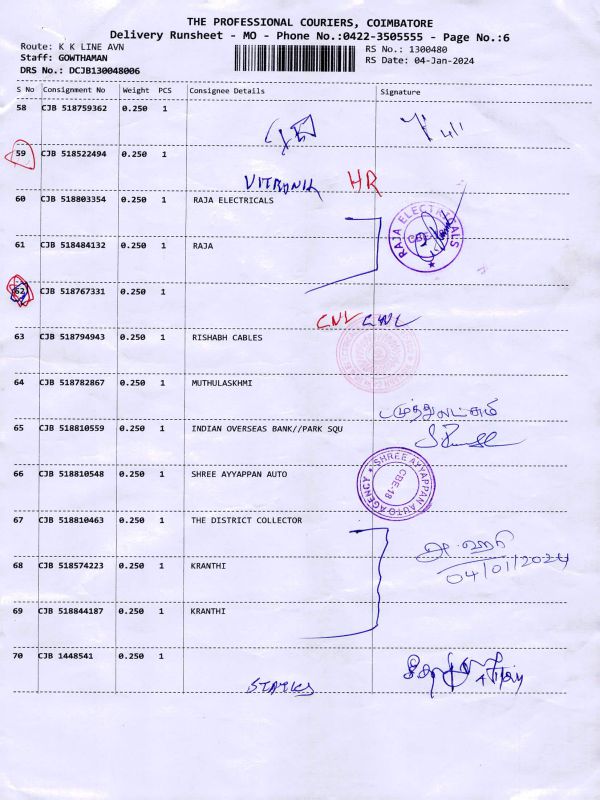 THE PROFESSIONAL COURIERS, COIMBATORE
Delivery Runsheet - MO - Phone No.:0422-3505555 - Page No.:6
Route: K K LINE AVN
RS No.: 1300480
Staff: GOWTHAMAN
RS Date: 04-Jan-2024
DRS No.: DCJB130048006
S No Consignment No Weight PCS Consignee Details Signature
58 CJB 518759362 0.250 1
59 CJB 518522494 0.250 1
HR
60 CJB 518803354 0.250 1 RAJA ELECTRICALS
RAJA ELECTRICALS
61 CJB 518484132 0.250 1 RAJA
62 CJB 518767331 0.250 1
63 CJB 518794943 0.250 1 RISHABH CABLES
64 CJB 518782867 0.250 1 MUTHULASKHMI
முத்துலட்சுமி
65 CJB 518810559 0.250 1 INDIAN OVERSEAS BANK//PARK SQU
66 CJB 518810548 0.250 1 SHREE AYYAPPAN AUTO
SHREE AYYAPPAN AUTO AGENCY
CBE-18
67 CJB 518810463 0.250 1 THE DISTRICT COLLECTOR
68 CJB 518574223 0.250 1 KRANTHI
04/01/2024
69 CJB 518844187 0.250 1 KRANTHI
70 CJB 1448541 0.250 1